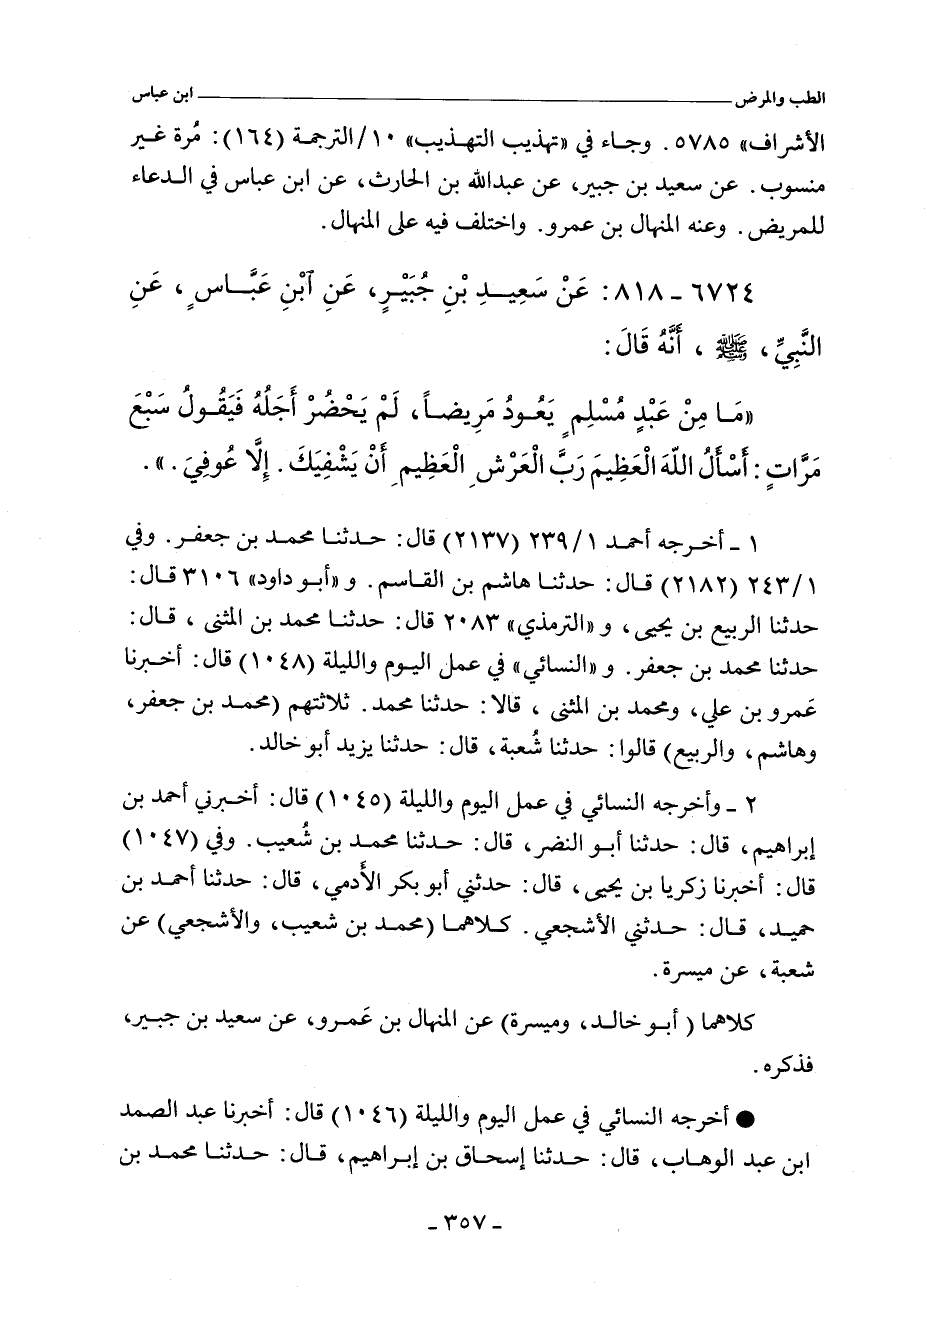 الطب والمرض ابن عباس
الأشراف» ٥٧٨٥. وجاء في «تهذيب التهذيب» ١٠/الترجمة (١٦٤): مُرة غير
منسوب. عن سعيد بن جبير، عن عبدالله بن الحارث، عن ابن عباس في الدعاء
للمريض. وعنه المنهال بن عمرو. واختلف فيه على المنهال.
٦٧٢٤ - ٨١٨: عَنْ سَعِيدِ بْنِ جُبَيْرٍ، عَنِ ٱبْنِ عَبَّاسٍ، عَنِ
النَّبِيِّ، ﷺ، أَنَّهُ قَالَ:
«مَا مِنْ عَبْدٍ مُسْلِمٍ يَعُودُ مَرِيضاً، لَمْ يَحْضُرْ أَجَلُهُ فَيَقُولُ سَبْعَ
مَرَّاتٍ: أَسْأَلُ اللهَ الْعَظِيمَ رَبَّ الْعَرْشِ الْعَظِيمِ أَنْ يَشْفِيَكَ. إِلَّا عُوفِيَ.».
١ - أخرجه أحمد ٢٣٩/١ (٢١٣٧) قال: حدثنا محمد بن جعفر. وفي
٢٤٣/١ (٢١٨٢) قال: حدثنا هاشم بن القاسم. و «أبو داود» ٣١٠٦ قال:
حدثنا الربيع بن يحيى، و «الترمذي» ٢٠٨٣ قال: حدثنا محمد بن المثنى، قال:
حدثنا محمد بن جعفر. و «النسائي» في عمل اليوم والليلة (١٠٤٨) قال: أخبرنا
عَمرو بن علي، ومحمد بن المثنى، قالا: حدثنا محمد. ثلاثتهم (محمد بن جعفر،
وهاشم، والربيع) قالوا: حدثنا شُعبة، قال: حدثنا يزيد أبو خالد.
٢ - وأخرجه النسائي في عمل اليوم والليلة (١٠٤٥) قال: أخبرني أحمد بن
إبراهيم، قال: حدثنا أبو النضر، قال: حدثنا محمد بن شُعيب. وفي (١٠٤٧)
قال: أخبرنا زكريا بن يحيى، قال: حدثني أبو بكر الأَدمي، قال: حدثنا أحمد بن
حميد، قال: حدثني الأشجعي. كلاهما (محمد بن شعيب، والأشجعي) عن
شعبة، عن ميسرة.
كلاهما (أبو خالد، وميسرة) عن المنهال بن عَمرو، عن سعيد بن جبير،
فذكره.
● أخرجه النسائي في عمل اليوم والليلة (١٠٤٦) قال: أخبرنا عبد الصمد
ابن عبد الوهاب، قال: حدثنا إسحاق بن إبراهيم، قال: حدثنا محمد بن
- ٣٥٧ -